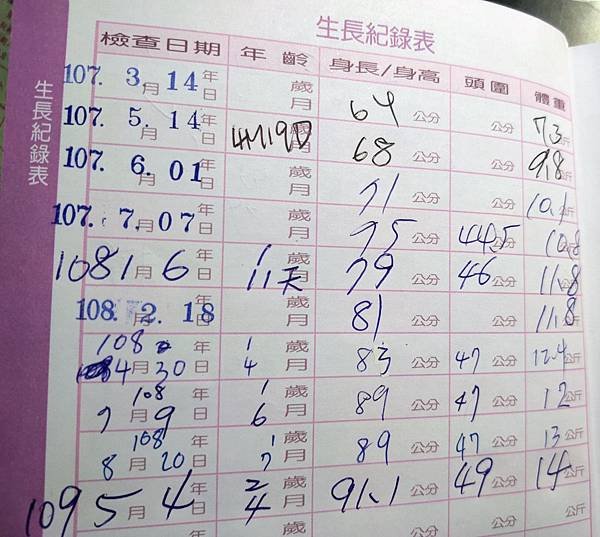 生長紀錄表
生長紀錄表
檢查日期 年齡 身長/身高 頭圍 體重
107. 3月14年日 歲月 64公分 公分 7.3公斤
107. 5.月14年日 4M19D歲月 68公分 公分 9.8公斤
107. 6.月01年日 歲月 71公分 公分 10.1公斤
107. 7.月07年日 歲月 75公分 44.5公分 10.8公斤
108 1月6年日 1歲11天月 79公分 46公分 11.8公斤
108. 2.月18年日 歲月 81公分 公分 11.8公斤
108年4月30日 1歲4月 83公分 47公分 12.4公斤
108年7月9日 1歲6月 89公分 47公分 12公斤
108年8月20日 1歲7月 89公分 47公分 13公斤
109 5月4年日 2歲4月 91.1公分 49公分 14公斤
年 歲 公分 公分 公斤